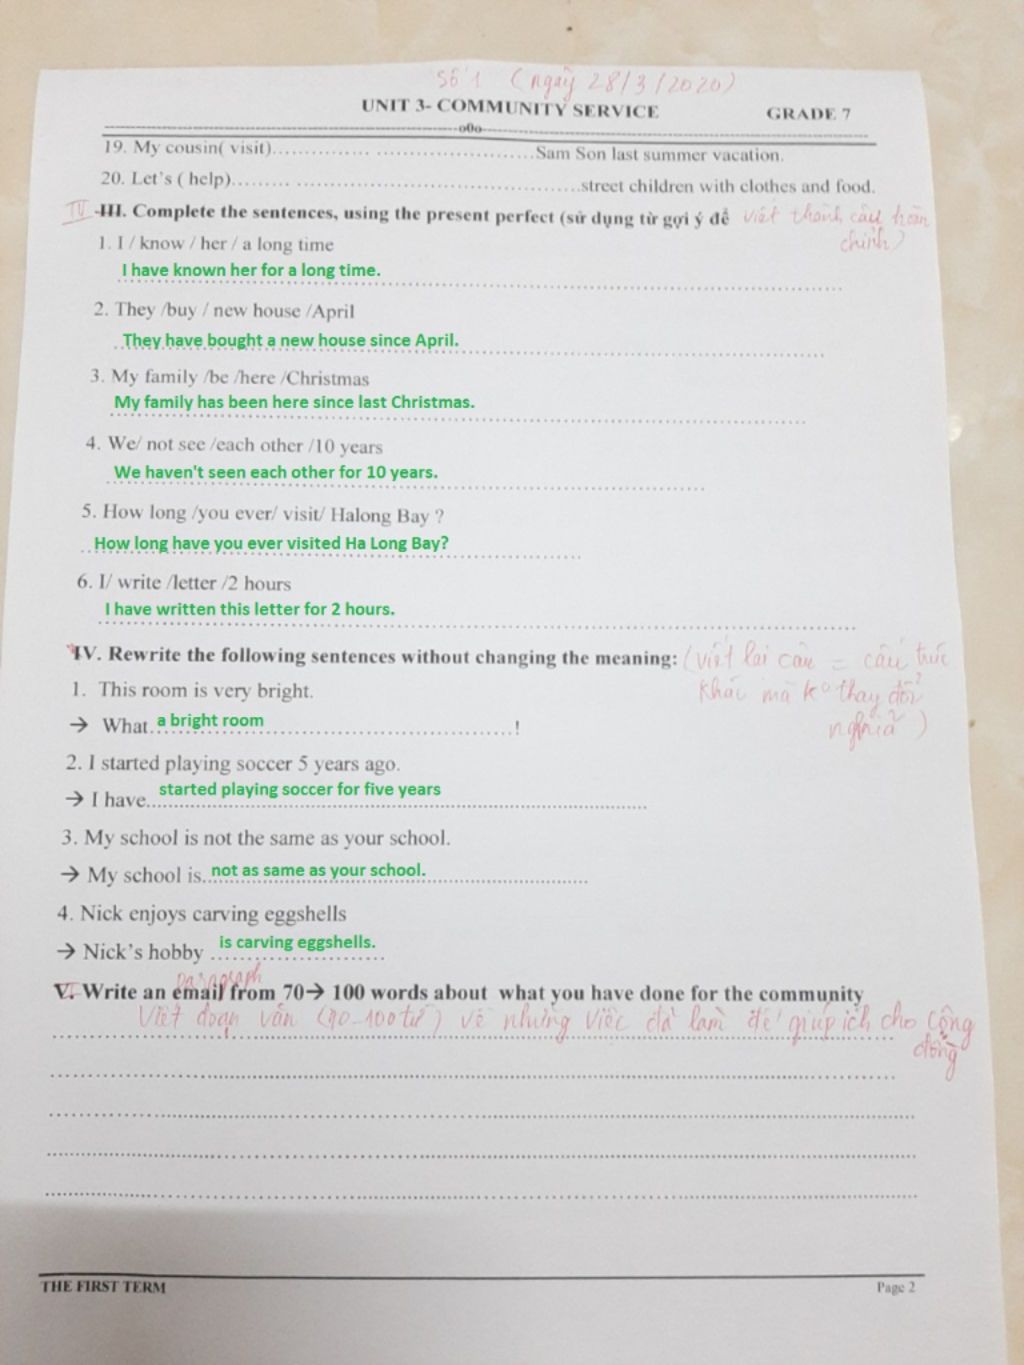 Số 1 (ngày 28/3/2020)
UNIT 3- COMMUNITY SERVICE GRADE 7
o0o
19. My cousin( visit).......................................Sam Son last summer vacation.
20. Let's ( help).......................................street children with clothes and food.
IV III. Complete the sentences, using the present perfect (sử dụng từ gợi ý để viết thành câu hoàn
chỉnh)
1. I / know / her / a long time
I have known her for a long time.
2. They /buy / new house /April
They have bought a new house since April.
3. My family /be /here /Christmas
My family has been here since last Christmas.
4. We/ not see /each other /10 years
We haven't seen each other for 10 years.
5. How long /you ever/ visit/ Halong Bay ?
How long have you ever visited Ha Long Bay?
6. I/ write /letter /2 hours
I have written this letter for 2 hours.
IV. Rewrite the following sentences without changing the meaning: (viết lại câu = cấu trúc
khác mà ko thay đổi
nghĩa)
1. This room is very bright.
→ What a bright room.......................................!
2. I started playing soccer 5 years ago.
→ I have started playing soccer for five years
3. My school is not the same as your school.
→ My school is not as same as your school.
4. Nick enjoys carving eggshells
→ Nick's hobby is carving eggshells.
paragraph
V. Write an email from 70→ 100 words about what you have done for the community
Viết đoạn văn (70-100 từ) về những việc đã làm để giúp ích cho cộng
đồng
THE FIRST TERM Page 2